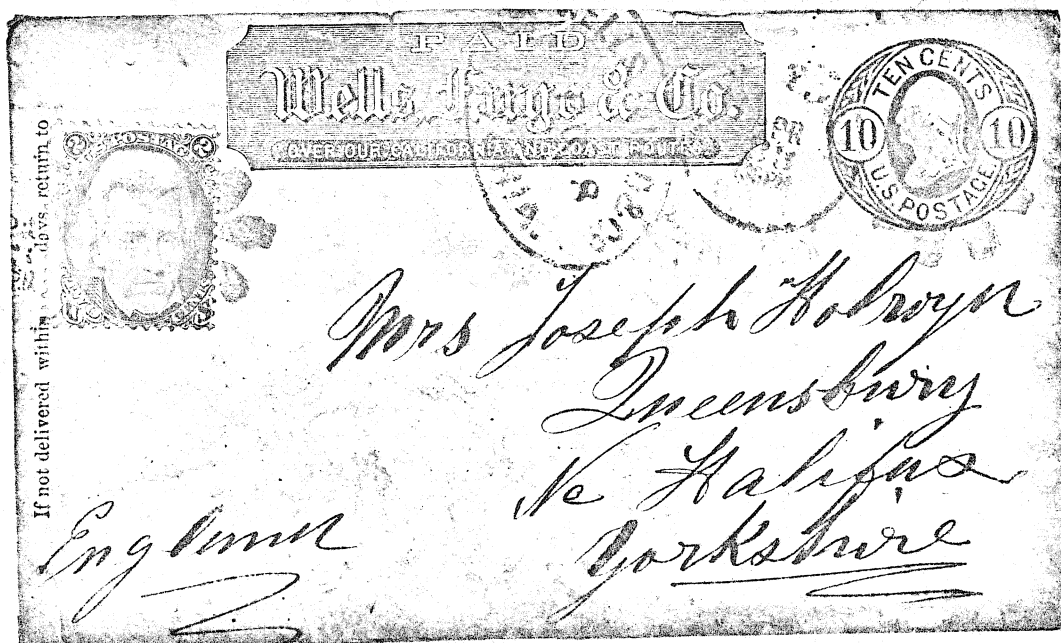 PAID
Wells, Fargo & Co.
OVER OUR CALIFORNIA AND COAST ROUTES
TEN CENTS
10 10
U.S. POSTAGE
2 2
If not delivered within days, return to
Mrs Joseph Holroyn
Queensbury
Nr Halifax
Yorkshire
England